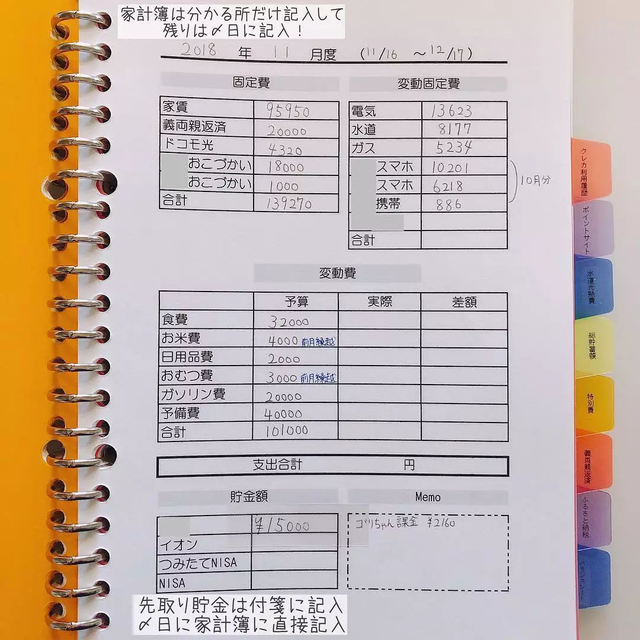 家計簿は分かる所だけ記入して
残りは〆日に記入！
2018 年 11 月度 (11/16 〜12/17)
固定費
家賃 95950
義両親返済 20000
ドコモ光 4320
おこづかい 18000
おこづかい 1000
合計 139270
変動固定費
電気 13623
水道 8177
ガス 5234
スマホ 10201
スマホ 6218
携帯 886
10月分
合計
変動費
予算 実際 差額
食費 32000
お米費 4000 前月繰越
日用品費 2000
おむつ費 3000 前月繰越
ガソリン費 20000
予備費 40000
合計 101000
支出合計 円
貯金額
¥15000
イオン
つみたてNISA
NISA
Memo
ゴリちゃん課金 ¥2160
先取り貯金は付箋に記入
〆日に家計簿に直接記入
クレカ利用履歴
ポイントサイト
水道光熱費
総貯蓄額
特別費
義両親返済
ふるさと納税